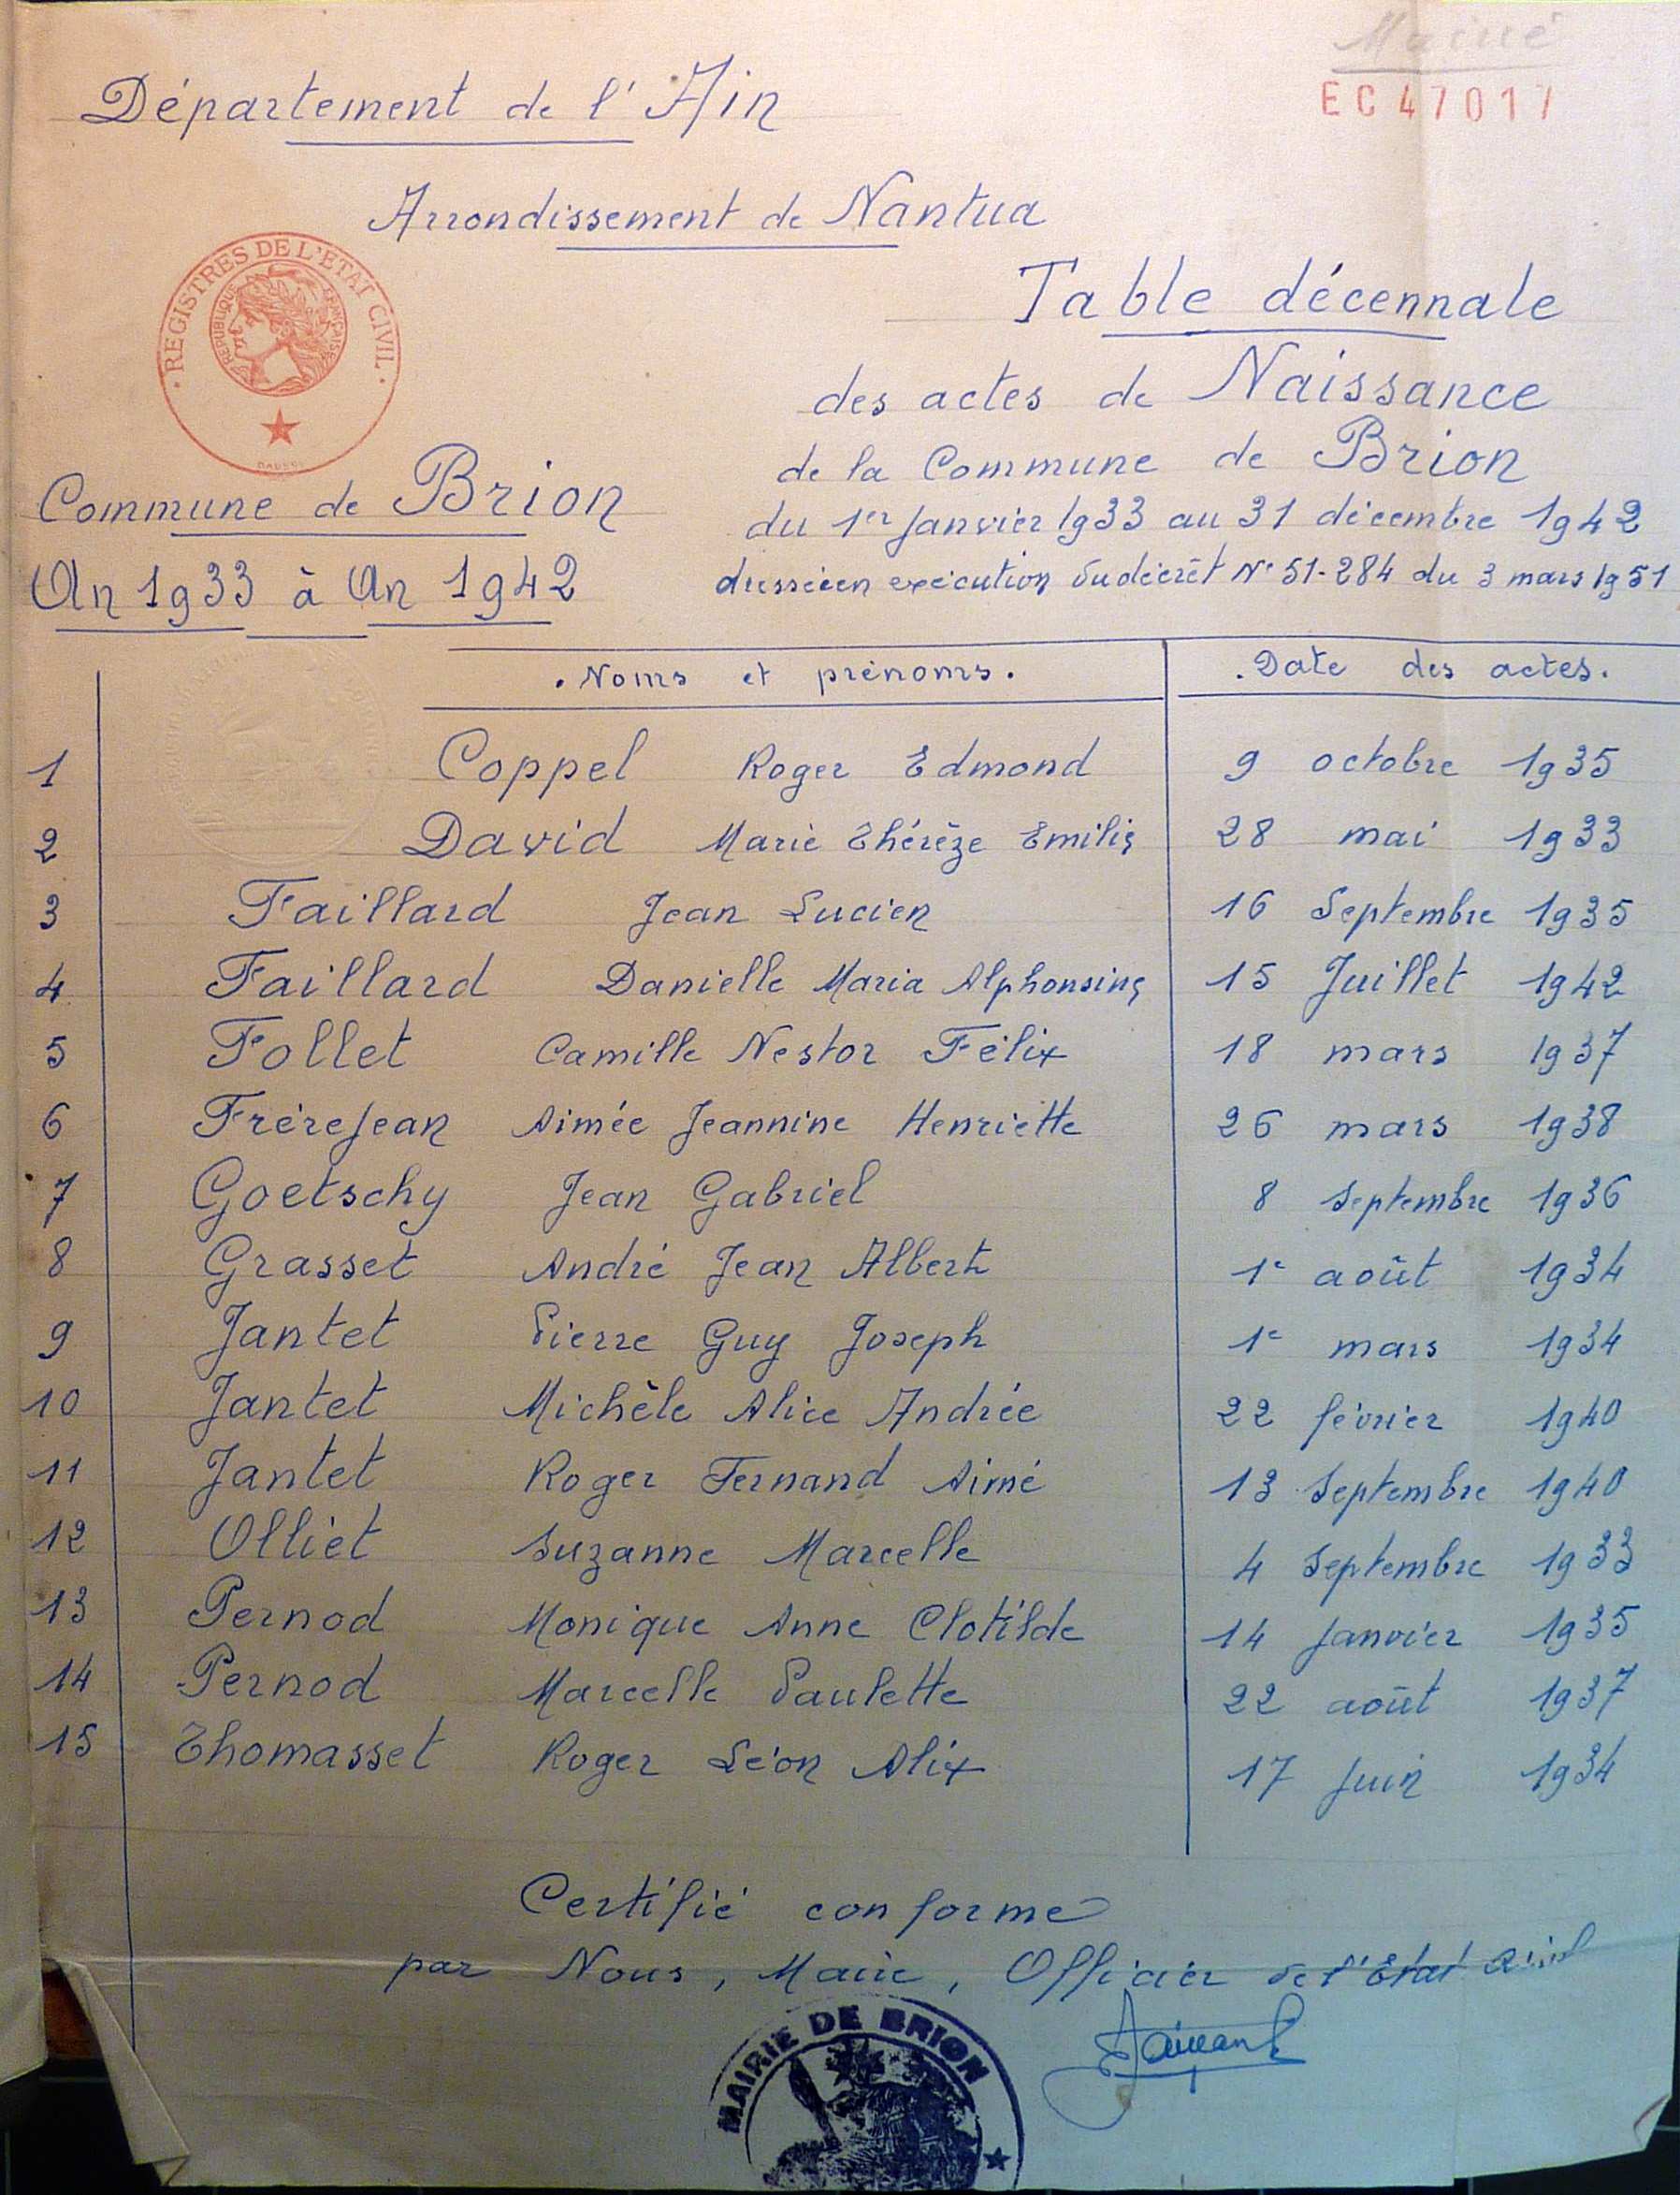 Mairie
EC47017
Département de l'Ain
Arrondissement de Nantua
REGISTRES DE L'ETAT CIVIL
REPUBLIQUE FRANÇAISE
Table décennale
des actes de Naissance
de la Commune de Brion
Commune de Brion
du 1er Janvier 1933 au 31 décembre 1942
An 1933 à An 1942
dressée en exécution du décrêt N° 51-284 du 3 mars 1951
Noms et prénoms. Date des actes.
1 Coppel Roger Edmond 9 octobre 1935
2 David Marie Thérèze Emilie 28 mai 1933
3 Faillard Jean Lucien 16 Septembre 1935
4 Faillard Danielle Maria Alphonsine 15 Juillet 1942
5 Follet Camille Nestor Félix 18 mars 1937
6 FrèreJean Aimée Jeannine Henriette 26 mars 1938
7 Goetschy Jean Gabriel 8 Septembre 1936
8 Grasset André Jean Albert 1e août 1934
9 Jantet Pierre Guy Joseph 1e mars 1934
10 Jantet Michèle Alice Andrée 22 février 1940
11 Jantet Roger Fernand Aimé 13 Septembre 1940
12 Olliet Suzanne Marcelle 4 Septembre 1933
13 Pernod Monique Anne Clotilde 14 Janvier 1935
14 Pernod Marcelle Paulette 22 août 1937
15 Thomasset Roger Léon Alix 17 Juin 1934
Certifié conforme
par Nous, Maire, Officier de l'Etat Civil
MAIRIE DE BRION